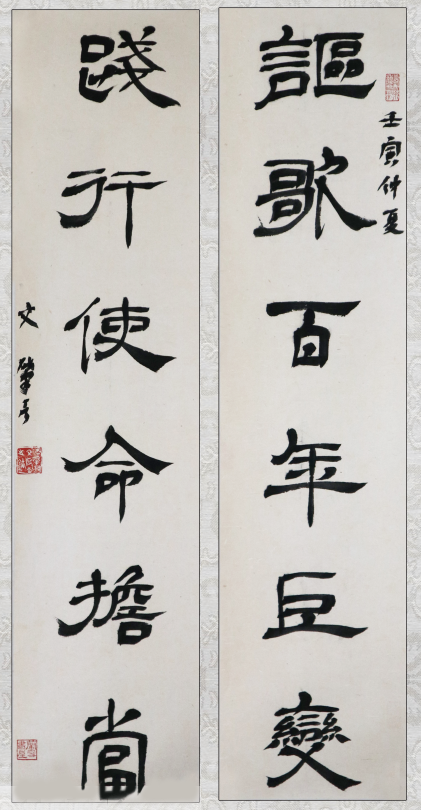 壬寅仲夏
謳歌百年巨變
踐行使命擔當
文肇